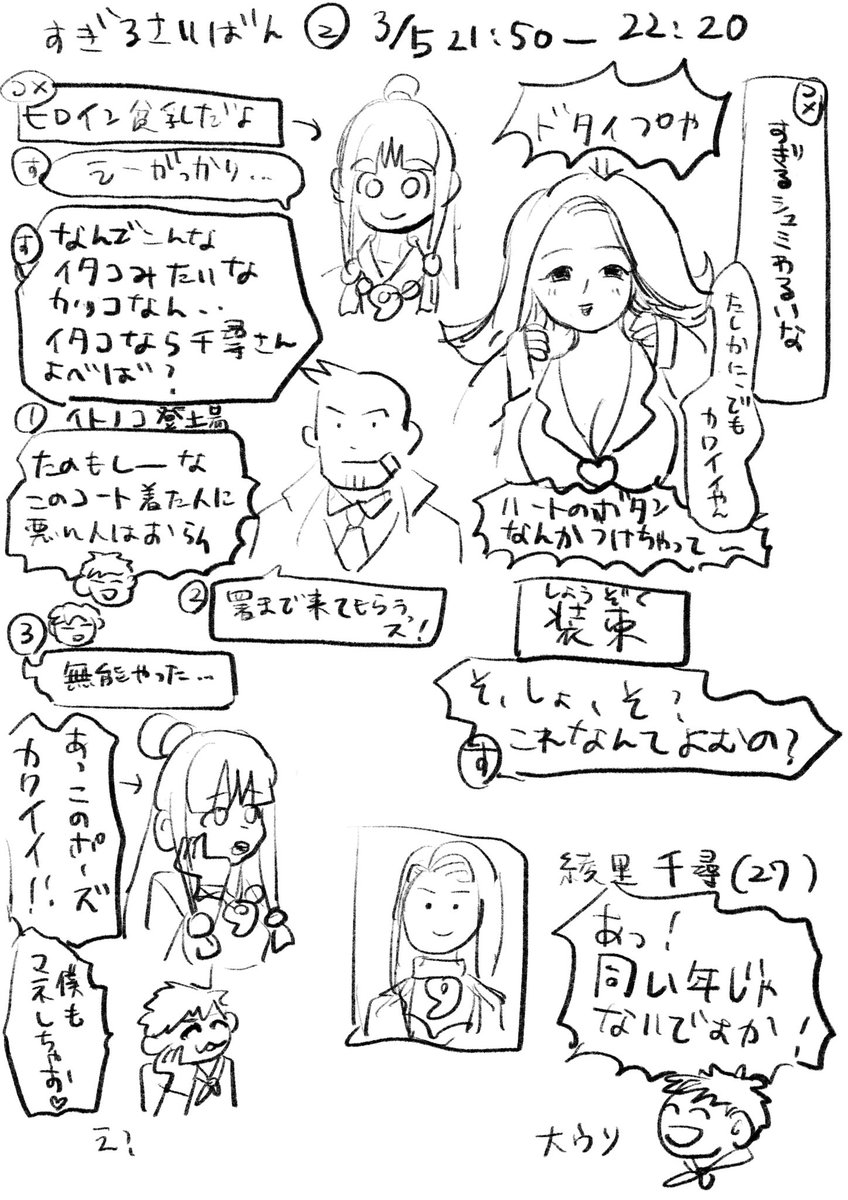 すぎるさいばん ② 3/5 21:50ー22:20
コメ
ヒロイン貧乳だよ
す
えーがっかり...
す
なんでこんな
イタコみたいな
カッコなん..
イタコなら千尋さん
よべば?
ドタイプや
コメ
すぎるシュミわるいな
たしかに、でも
カワイイやん
ハートのボタン
なんかつけちゃってー
① イトノコ登場
たのもしーな
このコート着た人に
悪い人はおらん
②
署まで来てもらうっ
ス!
③
無能やった...
しょうぞく
装束
そ、しょ、そ?
これなんてよむの?
す
あっこのポーズ
カワイイ!!
僕も
マネしちゃお♡
え?
綾里千尋(27)
あっ!
同い年じゃ
ないですか!
大ウソ